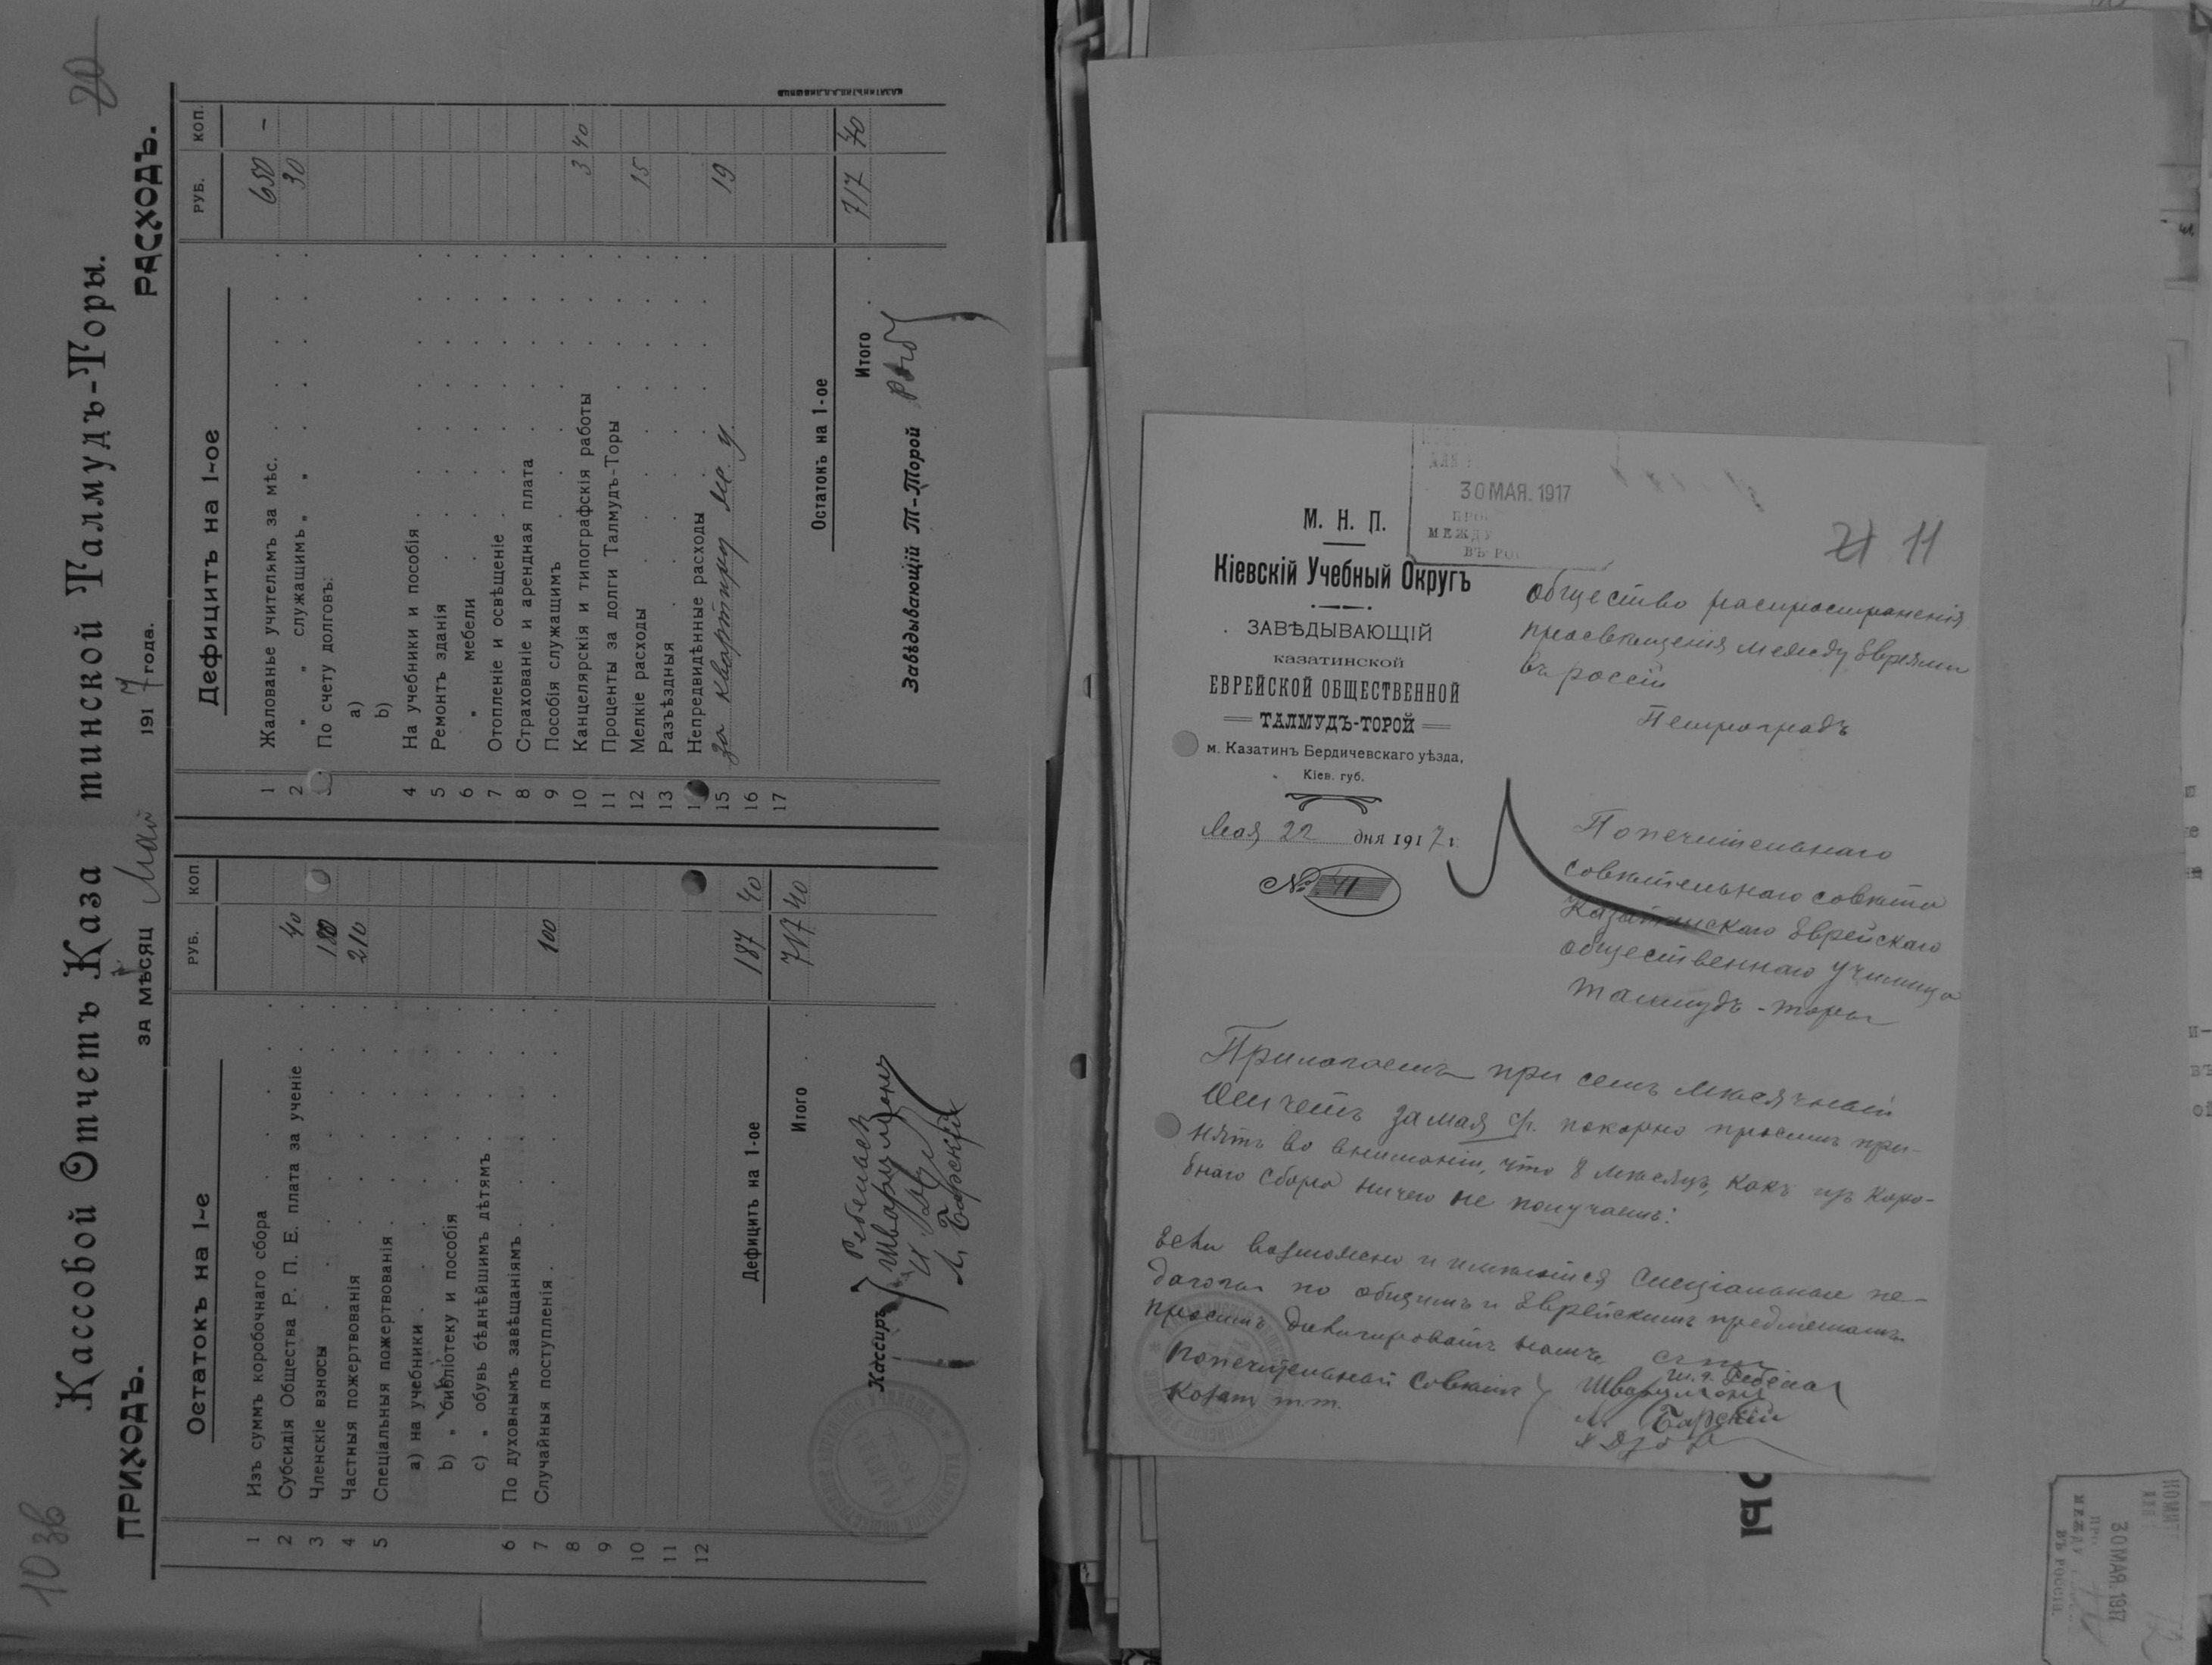 10 зв
20
Кассовой Отчетъ Каза тинской Талмудъ-Торы.
ПРИХОДЪ.
за мѣсяц Май 1917 года.
РАСХОДЪ.
Остатокъ на 1-е
РУБ. КОП
1 Изъ суммъ коробочнаго сбора
2 Субсидія Общества Р. П. Е. плата за ученіе 40
3 Членскіе взносы 180
4 Частныя пожертвованія 210
5 Спеціальныя пожертвованія
a) на учебники
b) „ библіотеку и пособія
c) „ обувь бѣднѣйшимъ дѣтямъ
6 По духовнымъ завѣщаніямъ
7 Случайныя поступленія 100
8
9
10
11
12
Дефицитъ на 1-ое 187 40
Итого 717 40
Кассиръ
М. Барскій
Дефицитъ на 1-ое
РУБ. КОП.
1 Жалованье учителямъ за мѣс. 650 –
2 „ „ служащимъ „ „ 30
По счету долговъ:
a)
b)
4 На учебники и пособія
5 Ремонтъ зданія
6 „ мебели
7 Отопленіе и освѣщеніе
8 Страхованіе и арендная плата
9 Пособія служащимъ
10 Канцелярскія и типографскія работы 3 40
11 Проценты за долги Талмудъ-Торы
12 Мелкіе расходы 15
13 Разъѣздныя
1 Непредвидѣнные расходы
15 за квартиру 19
16
17
Остатокъ на 1-ое
Итого 717 40
Завѣдывающій Т-Торой
30 МАЯ. 1917
МЕЖДУ
ВЪ РОС
21 11
М. Н. П.
Кіевскій Учебный Округъ
ЗАВѢДЫВАЮЩІЙ
казатинской
ЕВРЕЙСКОЙ ОБЩЕСТВЕННОЙ
ТАЛМУДЪ-ТОРОЙ
м. Казатинъ Бердичевскаго уѣзда,
Кіев. губ.
Мая 22 дня 1917 г.
№ 41
Общество распространенія
просвѣщенія между Евреями
въ россіи
Петроградъ
Попечительнаго
совѣтельнаго совѣта
Казатинскаго Еврейскаго
общественнаго училища
Талмудъ-торы
Прилогаемъ при семъ мѣсячный
Отчетъ за мая с/г. покорно просимъ при-
нять во вниманіи, что 8 мѣсяцъ, какъ изъ Коро-
бнаго сбора ничего не получаемъ:
Если возможно и имѣются Спеціальные пе-
дагоги по общимъ и Еврейскимъ предметамъ
просимъ
Попечительный Совѣтъ
Козат т.т.
М. Барскій
РЫ
30 МАЯ. 1917
МЕЖДУ
ВЪ РОССІИ.